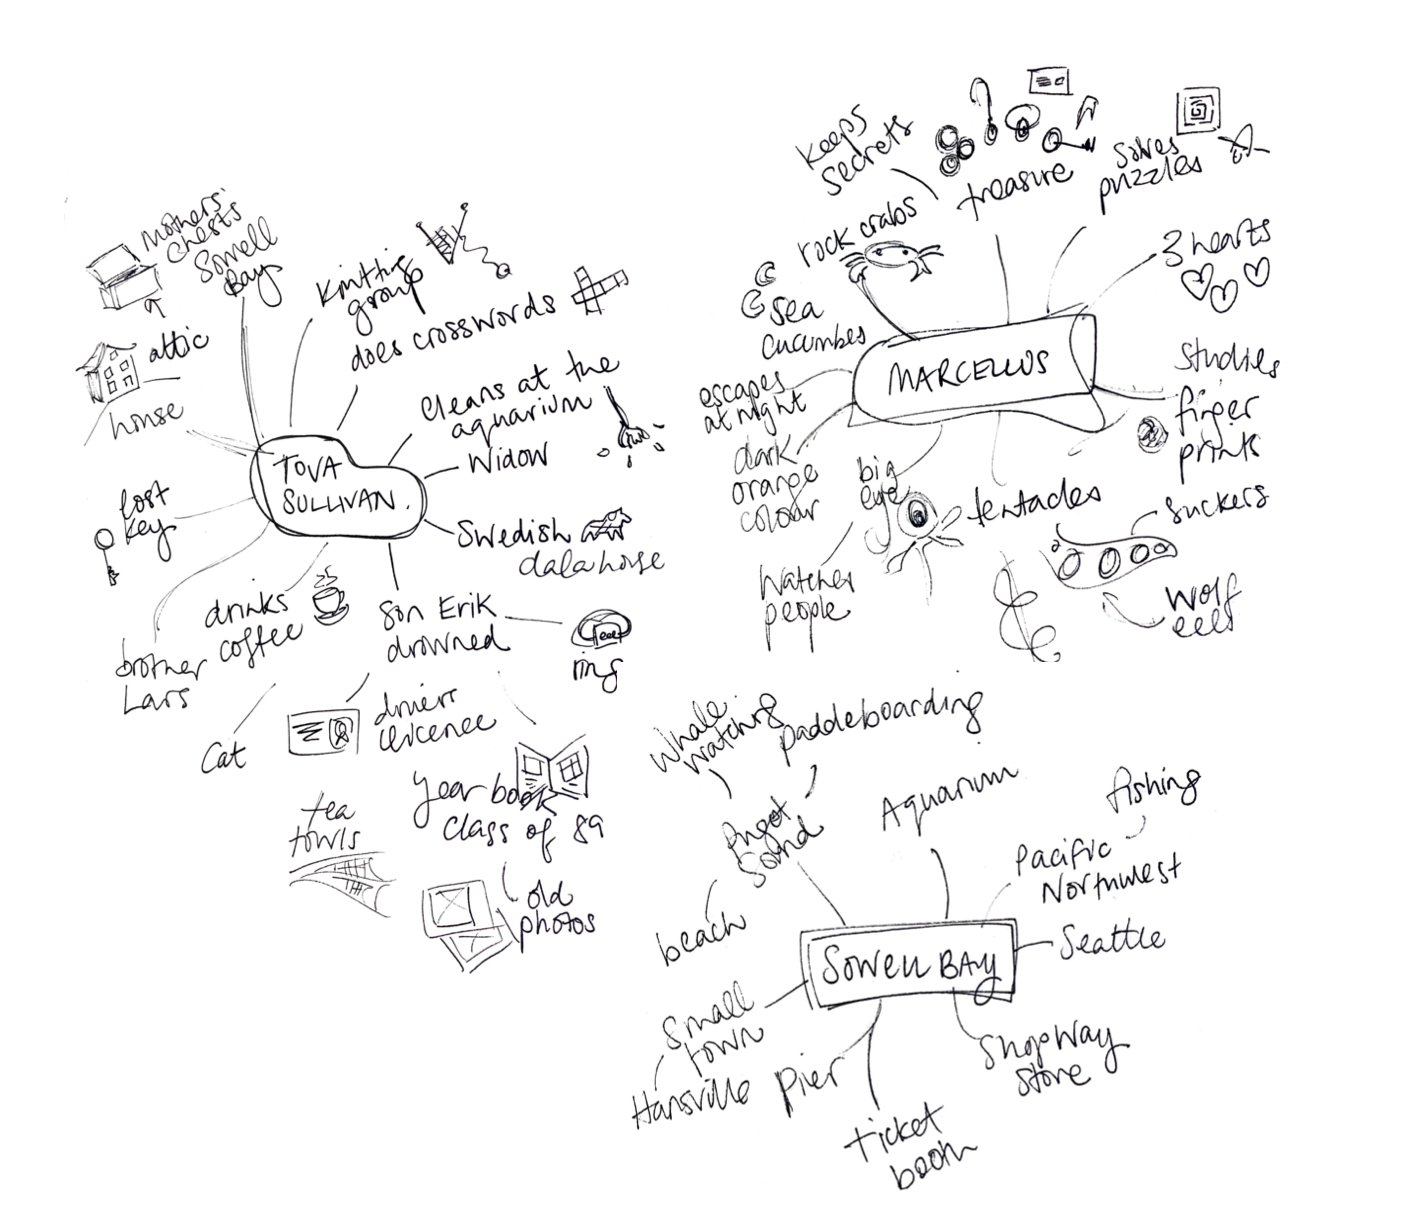 mothers'
chests
Sowell
Bay
attic
house
Knitting
group
does crosswords
Cleans at the
aquarium
Widow
TOVA
SULLIVAN.
lost
key
Swedish
dala horse
drinks
coffee
Son Erik
drowned
ring
brother
Lars
Cat
drivers
licence
year book
class of 89
tea
towls
old
photos
keeps
secrets
treasure
solves
puzzles
rock crabs
3 hearts
sea
cucumbes
MARCELLUS
escapes
at night
studies
finger
prints
dark
orange
colour
big
eye
tentacles
suckers
Watches
people
wolf
eels
whale
watching
paddleboarding
Puget
Sound
Aquarium
fishing
Pacific
Northwest
beach
Seattle
SOWELL BAY
small
town
Hansville
Pier
ShopWay
store
ticket
booth